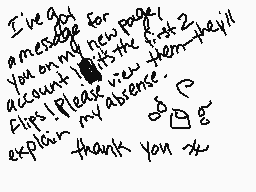 I've got
a message for
you on my new page/
account! it's the first 2
flips! Please view them—they'll
explain my absense.
thank you